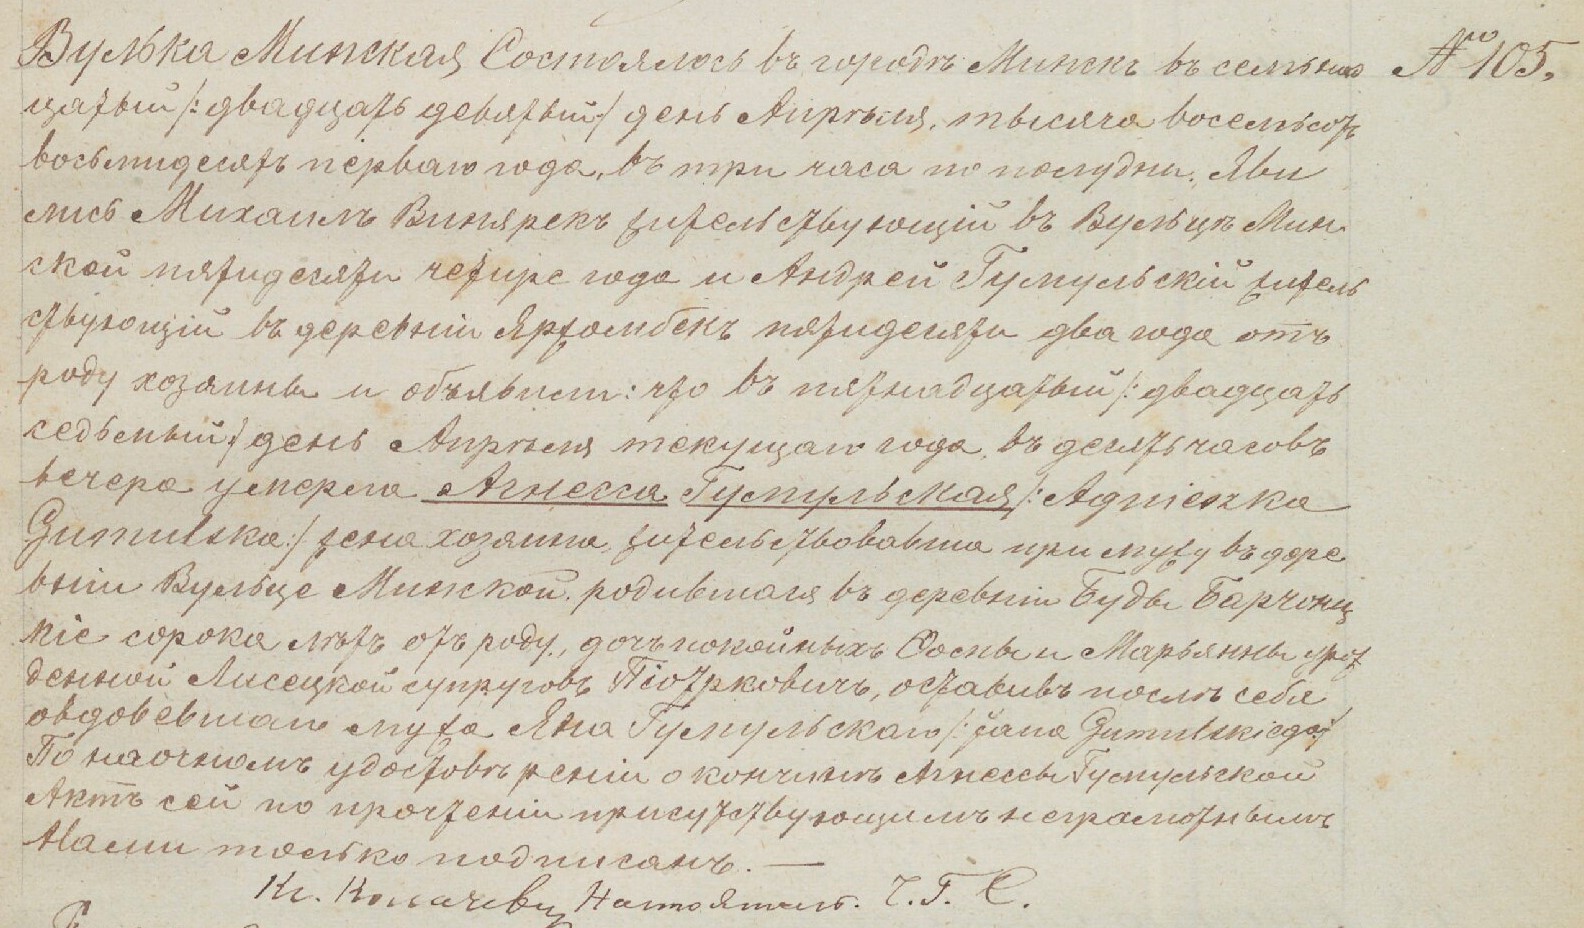 Вулька Минская Состоялось въ городѣ Минскѣ въ семьнад № 105.
цатый /: двадцать девятый :/ день Апрѣля, тысяча восемьсотъ
восьмидесятъ перваго года, въ три часа по полудни. Яви
лись Михаилъ Винярекъ жительствующій въ Вульцѣ Мин
ской пятидесяти четыре года и Андрей Гумульскій житель
ствующій въ деревнѣ Яржомбекъ пятидесяти два года отъ
роду хозяины и объявили: что въ пятнадцатый /: двадцать
седьмый :/ день Апрѣля текущаго года, въ десять часовъ
вечера умерла Агнесса Гумульская /: Agnieszka
Gumulska :/ жена хозяина, жительствовавша при мужу въ дере
внѣ Вульце Минской, родившася въ деревнѣ Буды Барчонц
кіе сорока лѣтъ отъ роду, дочь покойныхъ Сосны и Марьянны урож
денной Лисецкой супруговъ Піотрковичъ, оставивъ послѣ себя
овдовевшаго мужа Яна Гумульскаго /: Jana Gumulskiego :/
По наочномъ удостовѣреніи о кончинѣ Агнессы Гумульской
Актъ сей по прочтеніи присутствующимъ неграмотнымъ
Нами только подписанъ. —
Кс. Настоятель. Ч. Г. С.